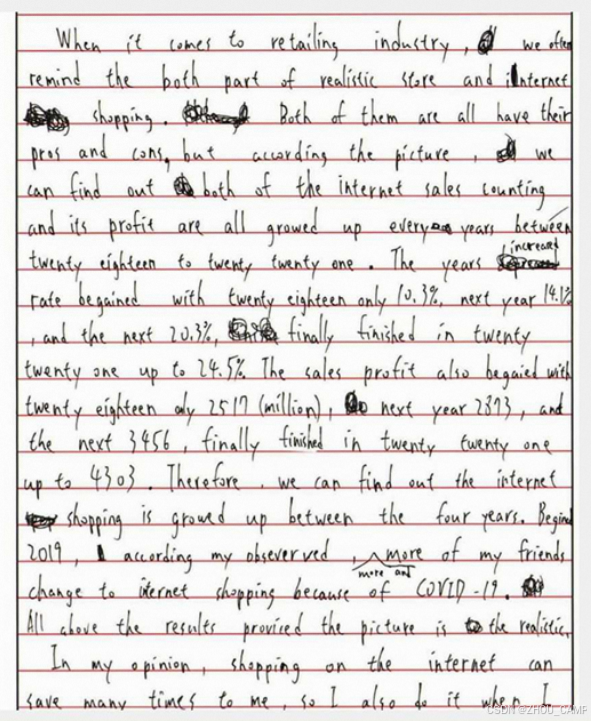 When it comes to retailing industry, we often
remind the both part of realistic store and internet
shopping. Both of them are all have their
pros and cons, but according the picture, we
can find out both of the internet sales counting
and its profit are all growed up every years between
twenty eighteen to twenty twenty one. The years increased
rate begained with twenty eighteen only 10.3%, next year 14.1%
, and the next 20.3%, finally finished in twenty
twenty one up to 24.5%. The sales profit also begaied with
twenty eighteen only 2517 (million), next year 2873, and
the next 3456, finally finished in twenty twenty one
up to 4303. Therefore, we can find out the internet
shopping is growed up between the four years. Begind
2019, according my observerved, more and more of my friends
change to internet shopping because of COVID-19.
All above the results proviced the picture is the realistic.
In my opinion, shopping on the internet can
save many times to me, so I also do it when I
CSDN @ZHOU_CAMP